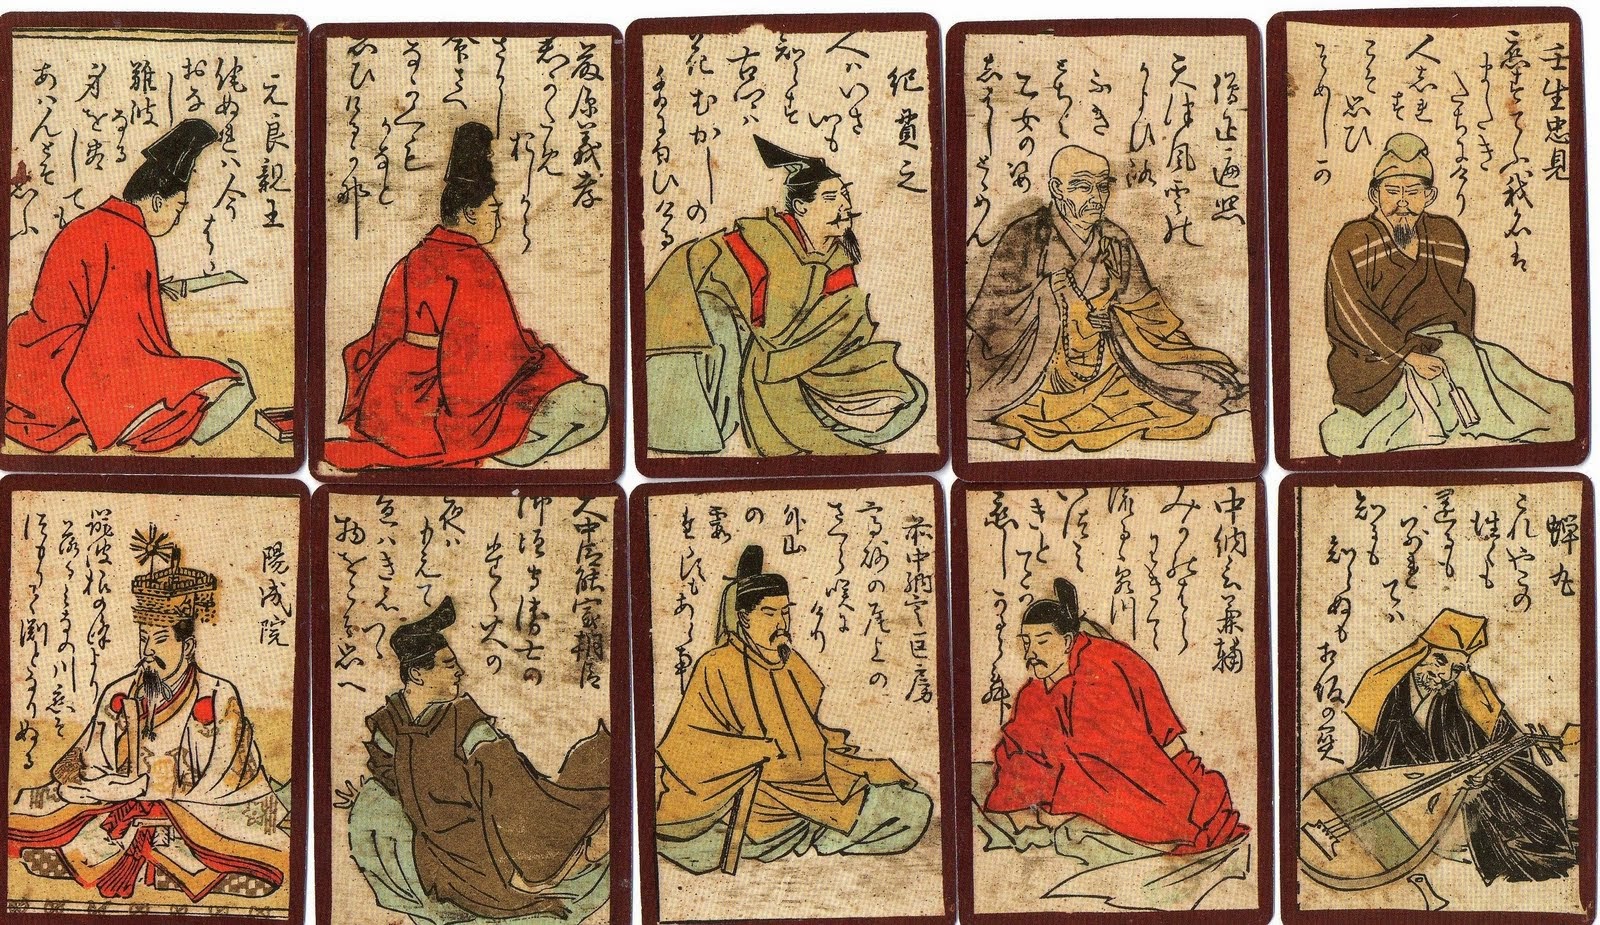 元良親王
侘ぬれハ今はた
おなし
難波なる
身を尽しても
あハんとそ思ふ
藤原義孝
君かため
おしから
さりし
命さへ
なかくもかなと
思ひけるか那
紀貫之
人ハいさ
心も
知らす
古郷ハ
花むかしの
香に匂ひける
僧正遍照
天津風雲の
かよひ路
ふき
とちよ
乙女の姿
しはしとゝめん
壬生忠見
恋すてふ我名は
またき
たちにけり
人しれす
こそ思ひ
そめしか
陽成院
筑波根の峰より
落るみなの川恋そ
つもりて渕となりぬる
大中臣能宣朝臣
御垣守衛士の
たく火の
夜ハ
もえて
昼ハきえつゝ
物をこそ思へ
前中納言匡房
高砂の尾上の
さくら咲に
けり
外山
の
霞
たゝすもあらなむ
中納言兼輔
みかのはら
わきて
流るゝ泉川
いつみ
きとてか
恋しかるらん
蝉丸
これやこの
行も
帰るも
別れてハ
知るも
知らぬも
坂の関